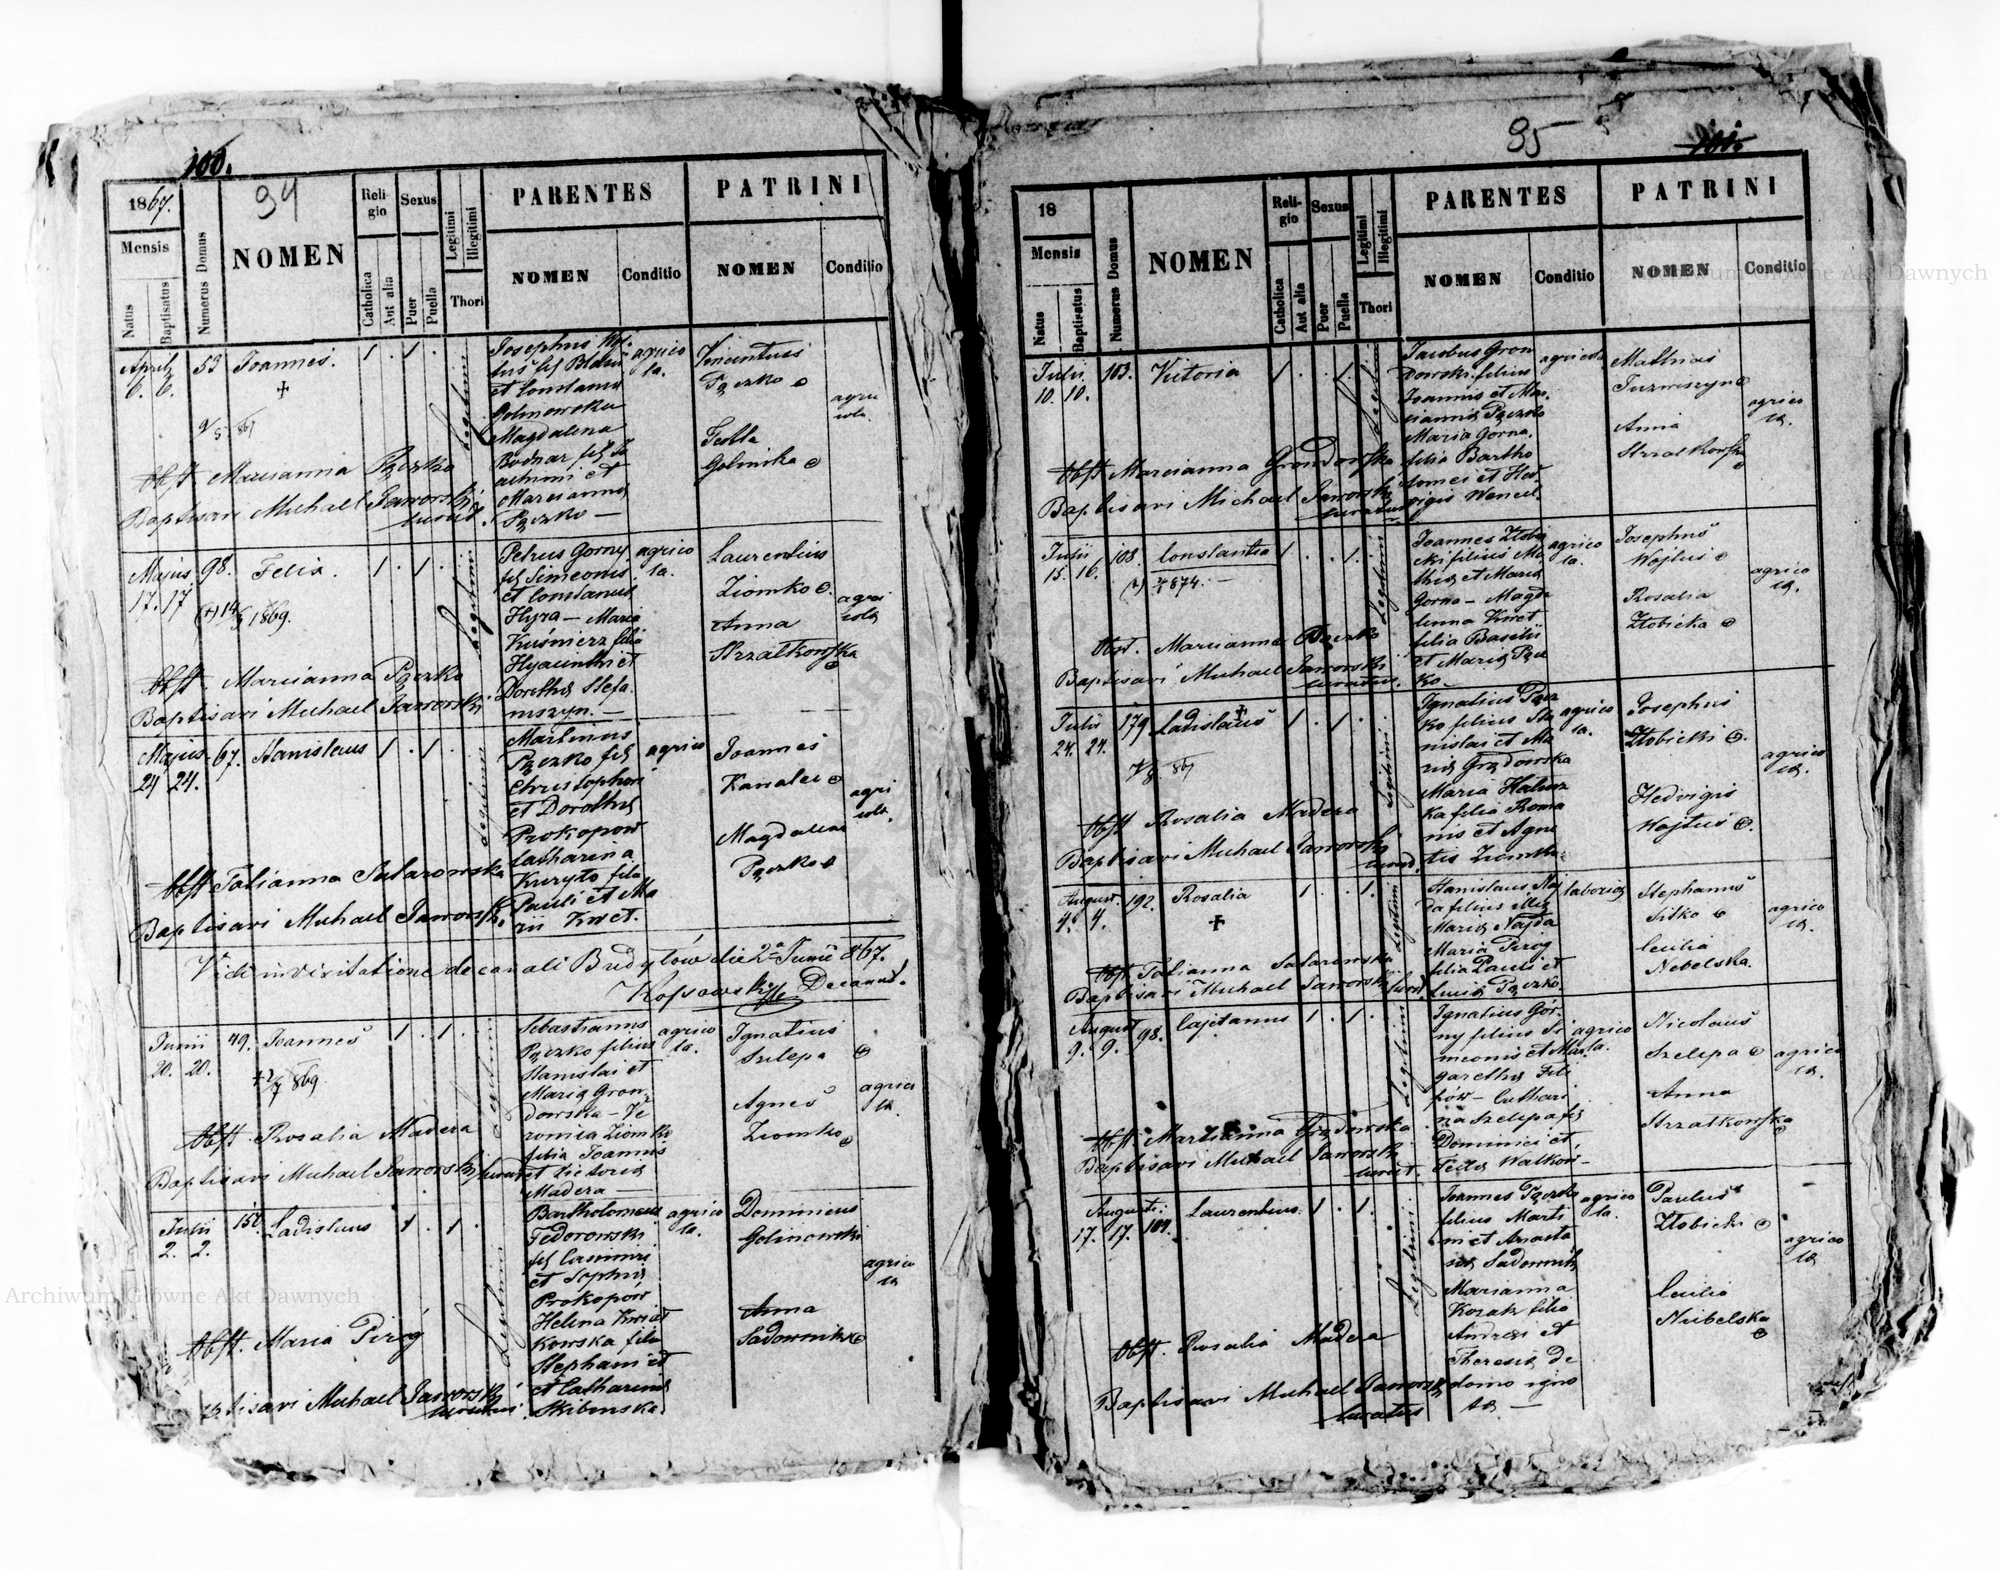 100.
94
1867.
Mensis
Natus
Baptisatus
Numerus Domus
NOMEN
Religio
Catholica
Aut alia
Sexus
Puer
Puella
Legitimi
Illegitimi
Thori
PARENTES
NOMEN
Conditio
PATRINI
NOMEN
Conditio
Aprilis
6. 6.
53
Joannes
1 . 1 .
legitimi
et Constantia
Golinowska
Magdalena
Bodnar
et
Marianna
Pączko —
agrico
la.
Vincentius
Pączko
Tecla
Golinska
agri
cola
Obst Marianna Pączko
Baptisavi Michael Jaworski
curat.
Majus
17. 17
98.
Felix.
1 . 1 .
1869.
legitimi
Petrus Gorny
fil Simeonis
et Constantia
Hyra — Maria
Kuśnierz filia
Hyacinthi et
Dorothea Stefa
niszyn. —
agrico
la.
Laurentius
Ziomko
Anna
Strzałkowska
agri
cola
Obst. Marianna Pączko
Baptisavi Michael Jaworski
Majus
24 24.
67.
Stanislaus
1 . 1 .
legitimi
Martinus
Pączko fil
Christophori
et Dorothea
Prokopow
Catharina
Pauli et Ma
rii Kret.
agrico
Joannes
Magdalena
Pączko
agri
cola
Obst Tatianna Salarowska
Baptisavi Michael Jaworski.
Vidi in visitatione decanali Budyłów die 2a Junii 867.
Decanus.
Junii
20. 20.
49.
Joannes
1 . 1 .
869
legitimi
Sebastianus
Pączko filius
Stanislai et
Maria Gron
dowska – Ve
ronica Ziomko
filia Joannis
et Victoria
Madera —
agrico
la.
Ignatius
Szelepa
Agnes
Ziomko
agrico
la.
Obst. Rosalia Madera
Baptisavi Michael Jaworski curat
Julii
2. 2.
157.
Ladislaus
1 . 1 .
Legitimi
Bartholomeus
Fedorowski
fil Casimiri
et Sophia
Prokopów
Helena Kwiat
kowska filia
Stephani et
et Catharina
Skibenska.
agrico
la.
Dominicus
Golinowski
Anna
Sadownik
agrico
la
Obst. Maria Pirog
Baptisavi Michael Jaworski
curatus
95
101.
18
Mensis
Natus
Baptisatus
Numerus Domus
NOMEN
Religio
Catholica
Aut alia
Sexus
Puer
Puella
Legitimi
Illegitimi
Thori
PARENTES
NOMEN
Conditio
PATRINI
NOMEN
Conditio
Julii
10. 10.
103.
Victoria
1 . . 1.
Legitimi
Jacobus Gron
dowski filius
Joannis et Mar
ianna Pączko
Maria Gorna.
filia Bartho
lomei et Hed
vigis Wencel.
agricola
Mathias
Anna
Strzałkowska
agrico
la.
Obst Marianna Grondowska
Baptisavi Michael Jaworski
curatus
Julii
15. 16.
108.
Constantia
1 . . 1.
874. —
Legitimi
Joannes Złobi
cki filius Ma
thia et Maria
Gorna – Magda
lenna Kret
filia Basilii
et Maria Pącz
ko. –
agrico
la.
Josephus
Wojtus
Rosalia
Złobicka
agrico
la.
Obst. Marianna Pączko
Baptisavi Michael Jaworski
curatus.
Julii
24. 24.
179.
Ladislaus
1 . 1 .
867
Legitimi
Ignatius Pącz
ko filius Sta
nislai et Ma
ria Grądowska
Maria Halusz
ka filia Roma
nis et Agne
tis Ziomko
agrico
la.
Josephus
Złobicki
Hedvigis
Wojtus
agrico
la.
Obst Rosalia Madera
Baptisavi Michael Jaworski
curat.
August.
4. 4.
192.
Rosalia
1 . . 1.
Legitimi
Stanislaus Naj
da filius illeg
Maria Najda
Maria Pirog
filia Pauli et
Lucia Pączko.
laborios
Stephanus
Sitko
Cecilia
Nebelska.
agrico
la.
Obst. Tatianna Salarowska
Baptisavi Michael Jaworski curat.
August
9. 9.
98.
Cajetanus
1 . 1 .
Legitimi
Ignatius Gór-
ny filius Si
meonis et Mar
garetha Fili
pów – Cathari
na Szelepa fil
Dominici et
Tecla Walków –
agrico
la.
Nicolaus
Szelepa
Anna
Strzałkowska
agrico
la.
Obst. Marianna Grądowska
Baptisavi Michael Jaworski
curat.
Augusti.
17. 17.
109.
Laurentius.
1 . 1 .
Legitimi
Joannes Pączko
filius Marti
ni et Anasta
sia Sadownik
Marianna
Kozak filia
Andrei et
Theresia de
domo igno
ta —
agrico
la.
Paulus
Złobicki
Cecilia
Niebelska
agrico
la
Obst. Rosalia Madera
Baptisavi Michael Jaworski
curatus
Archiwum Główne Akt Dawnych
Archiwum Główne Akt Dawnych